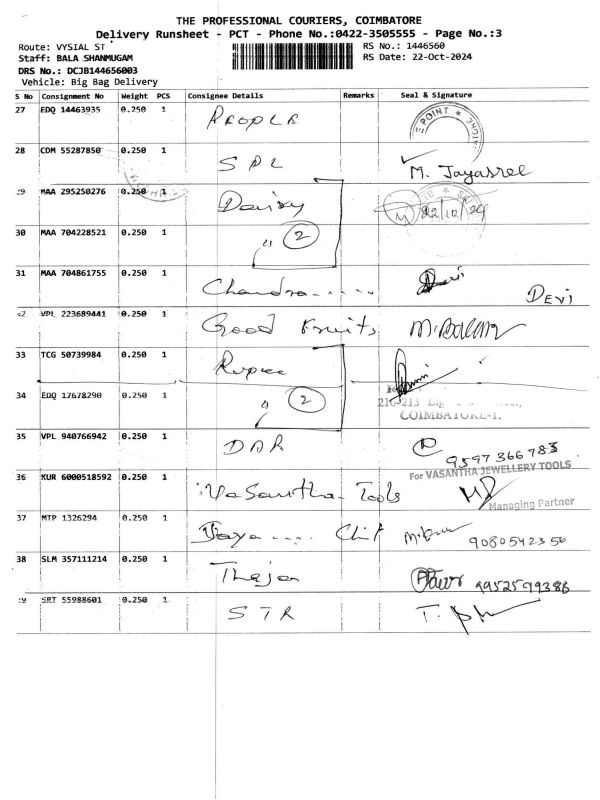 THE PROFESSIONAL COURIERS, COIMBATORE
Delivery Runsheet - PCT - Phone No.:0422-3505555 - Page No.:3
Route: VYSIAL ST RS No.: 1446560
Staff: BALA SHANMUGAM RS Date: 22-Oct-2024
DRS No.: DCJB144656003
Vehicle: Big Bag Delivery
S No Consignment No Weight PCS Consignee Details Remarks Seal & Signature
27 EDQ 14463935 0.250 1 PEOPLE POINT
28 CDM 55287850 0.250 1 SPL M. Jayasree
29 MAA 295250276 0.250 1 Daisy 22/10/24
30 MAA 704228521 0.250 1 〃 2
31 MAA 704861755 0.250 1 Chandra..... Devi DEVI
32 VPL 223689441 0.250 1 Good Fruits M.Balan
33 TCG 50739984 0.250 1 Rupee
34 EDQ 17678290 0.250 1 〃 2
COIMBATORE-1.
35 VPL 940766942 0.250 1 DAR 9597366783
36 KUR 6000518592 0.250 1 Vasantha Tools For VASANTHA JEWELLERY TOOLS
Managing Partner
37 MTP 1326294 0.250 1 Jaya.... Chit 9080542356
38 SLM 357111214 0.250 1 Thejas 9952599386
39 SRT 55988601 0.250 1 STR